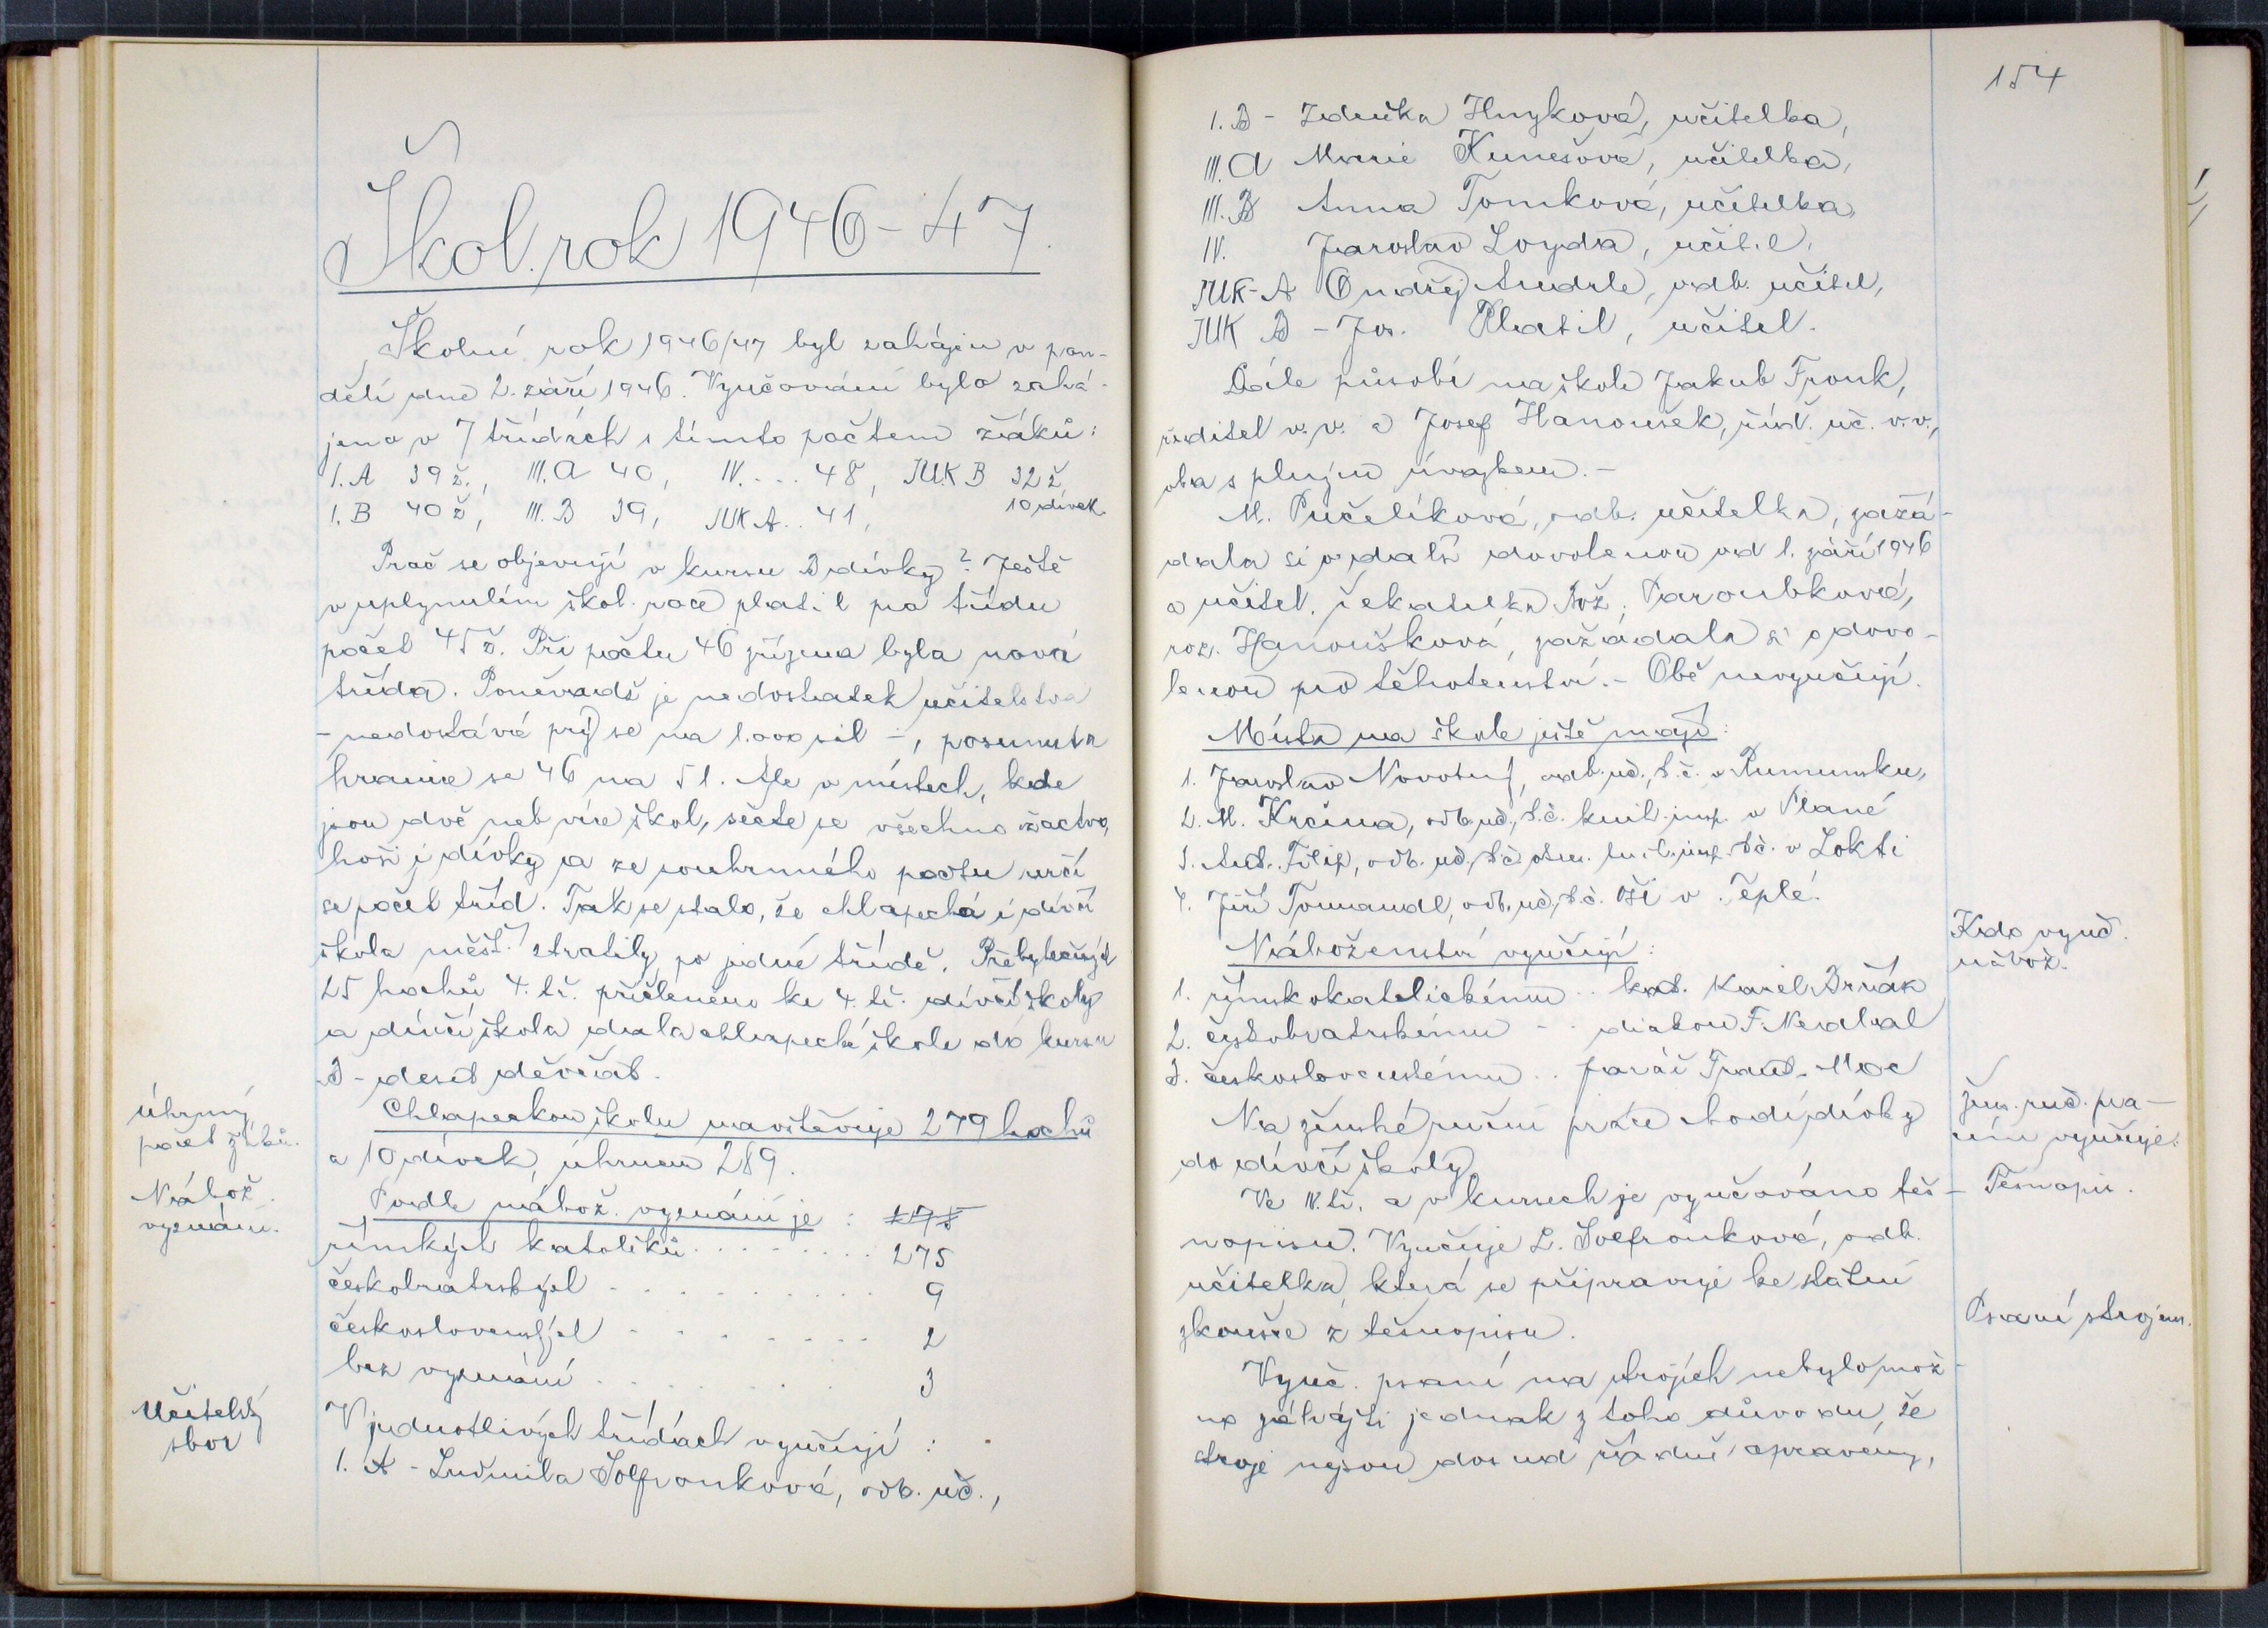 Škol. rok 1946-47.
Školní rok 1946/47 byl zahájen v pon-
dělí dne 2. září 1946. Vyučování bylo zahá-
jeno v 7 třídách s tímto počtem žáků:
I. A 39 ž., III. A 40, IV. ... 48, JUK B 32 ž.
I. B 40 ž, III. B 39, JUK A .. 41, 10 dívek.
Proč se objevují v kursu B dívky? Ještě
v uplynulém škol. roce platil pro třídu
počet 45 ž. Při počtu 46 zřízena byla nová
třída. Poněvadž je nedostatek učitelstva
- nedostává prý se na 1.000 sil -, posunuta
hranice se 46 na 51. Ale v místech, kde
jsou dvě neb více škol, sečte se všechno žactvo,
hoši i dívky a ze souhrnného počtu určí
se počet tříd. Tak se stalo, že chlapecká i dívčí
škola měšť. ztratily po jedné třídě. Přebytečných
25 hochů 4. tř. přičleněno ke 4. tř. dívčí školy
a dívčí škola dala chlapecké škole do kursu
B - deset děvčat.
Úhrnný
počet žáků.
Chlapeckou školu navštěvuje 279 hochů
a 10 dívek, úhrnem 289.
Nábož.
vyznání.
Podle nábož. vyznání je : 175
římských katolíků ........ 275
českobratrských .......... 9
československých ........ 2
bez vyznání .......... 3
Učitelský
sbor
V jednotlivých třídách vyučují :
1. A - Ludmila Solfronková, odb. uč.,
154
1. B - Zdeňka Hnyková, učitelka,
III. A Marie Kunešová, učitelka,
III. B Anna Tomková, učitelka,
IV. Jaroslav Loyda, učitel,
JUK-A Ondřej Andrle, odb. učitel,
JUK B - Jos. Platil, učitel.
Dále působí na škole Jakub Fronk,
ředitel v. v. a Josef Hanousek, říd. uč. v. v.,
oba s plným úvazkem. -
M. Pučelíková, odb. učitelka, zažá-
dala si o další dovolenou od 1. září 1946
a učitel. čekatelka Rož. Paroubková,
roz. Hanoušková, zažádala si o dovo-
lenou pro těhotenství. - Obě nevyučují.
Místa na škole ještě mají :
1. Jaroslav Novotný, odb. uč., t. č. v Rumunsku,
2. M. Krčma, odb. uč., t. č. knih. insp. v Plané
3. Ant. Filip, odb. uč., t. č. insp. t. č. v Lokti
4. Jiří Tomandl, odb. uč., t. č. v Teplé.
Kdo vyuč.
nábož.
Náboženství vyučují :
1. římskokatolickému .. kat. Karel Brňák
2. českobratrskému - . diakon F. Nedbal
3. československému .. farář Frant. Moc
Žen. ruč. pra-
cím vyučuje:
Na ženské ruční práce chodí dívky
do dívčí školy.
Těsnopis.
Ve IV. tř. a v kursech je vyučováno těs-
nopisu. Vyučuje L. Solfronková, odb.
učitelka, která se připravuje ke státní
zkoušce z těsnopisu.
Psaní strojem.
Vyuč. psaní na strojích nebylo mož-
no zahájiti jednak z toho důvodu, že
stroje nejsou dosud řádně opraveny,